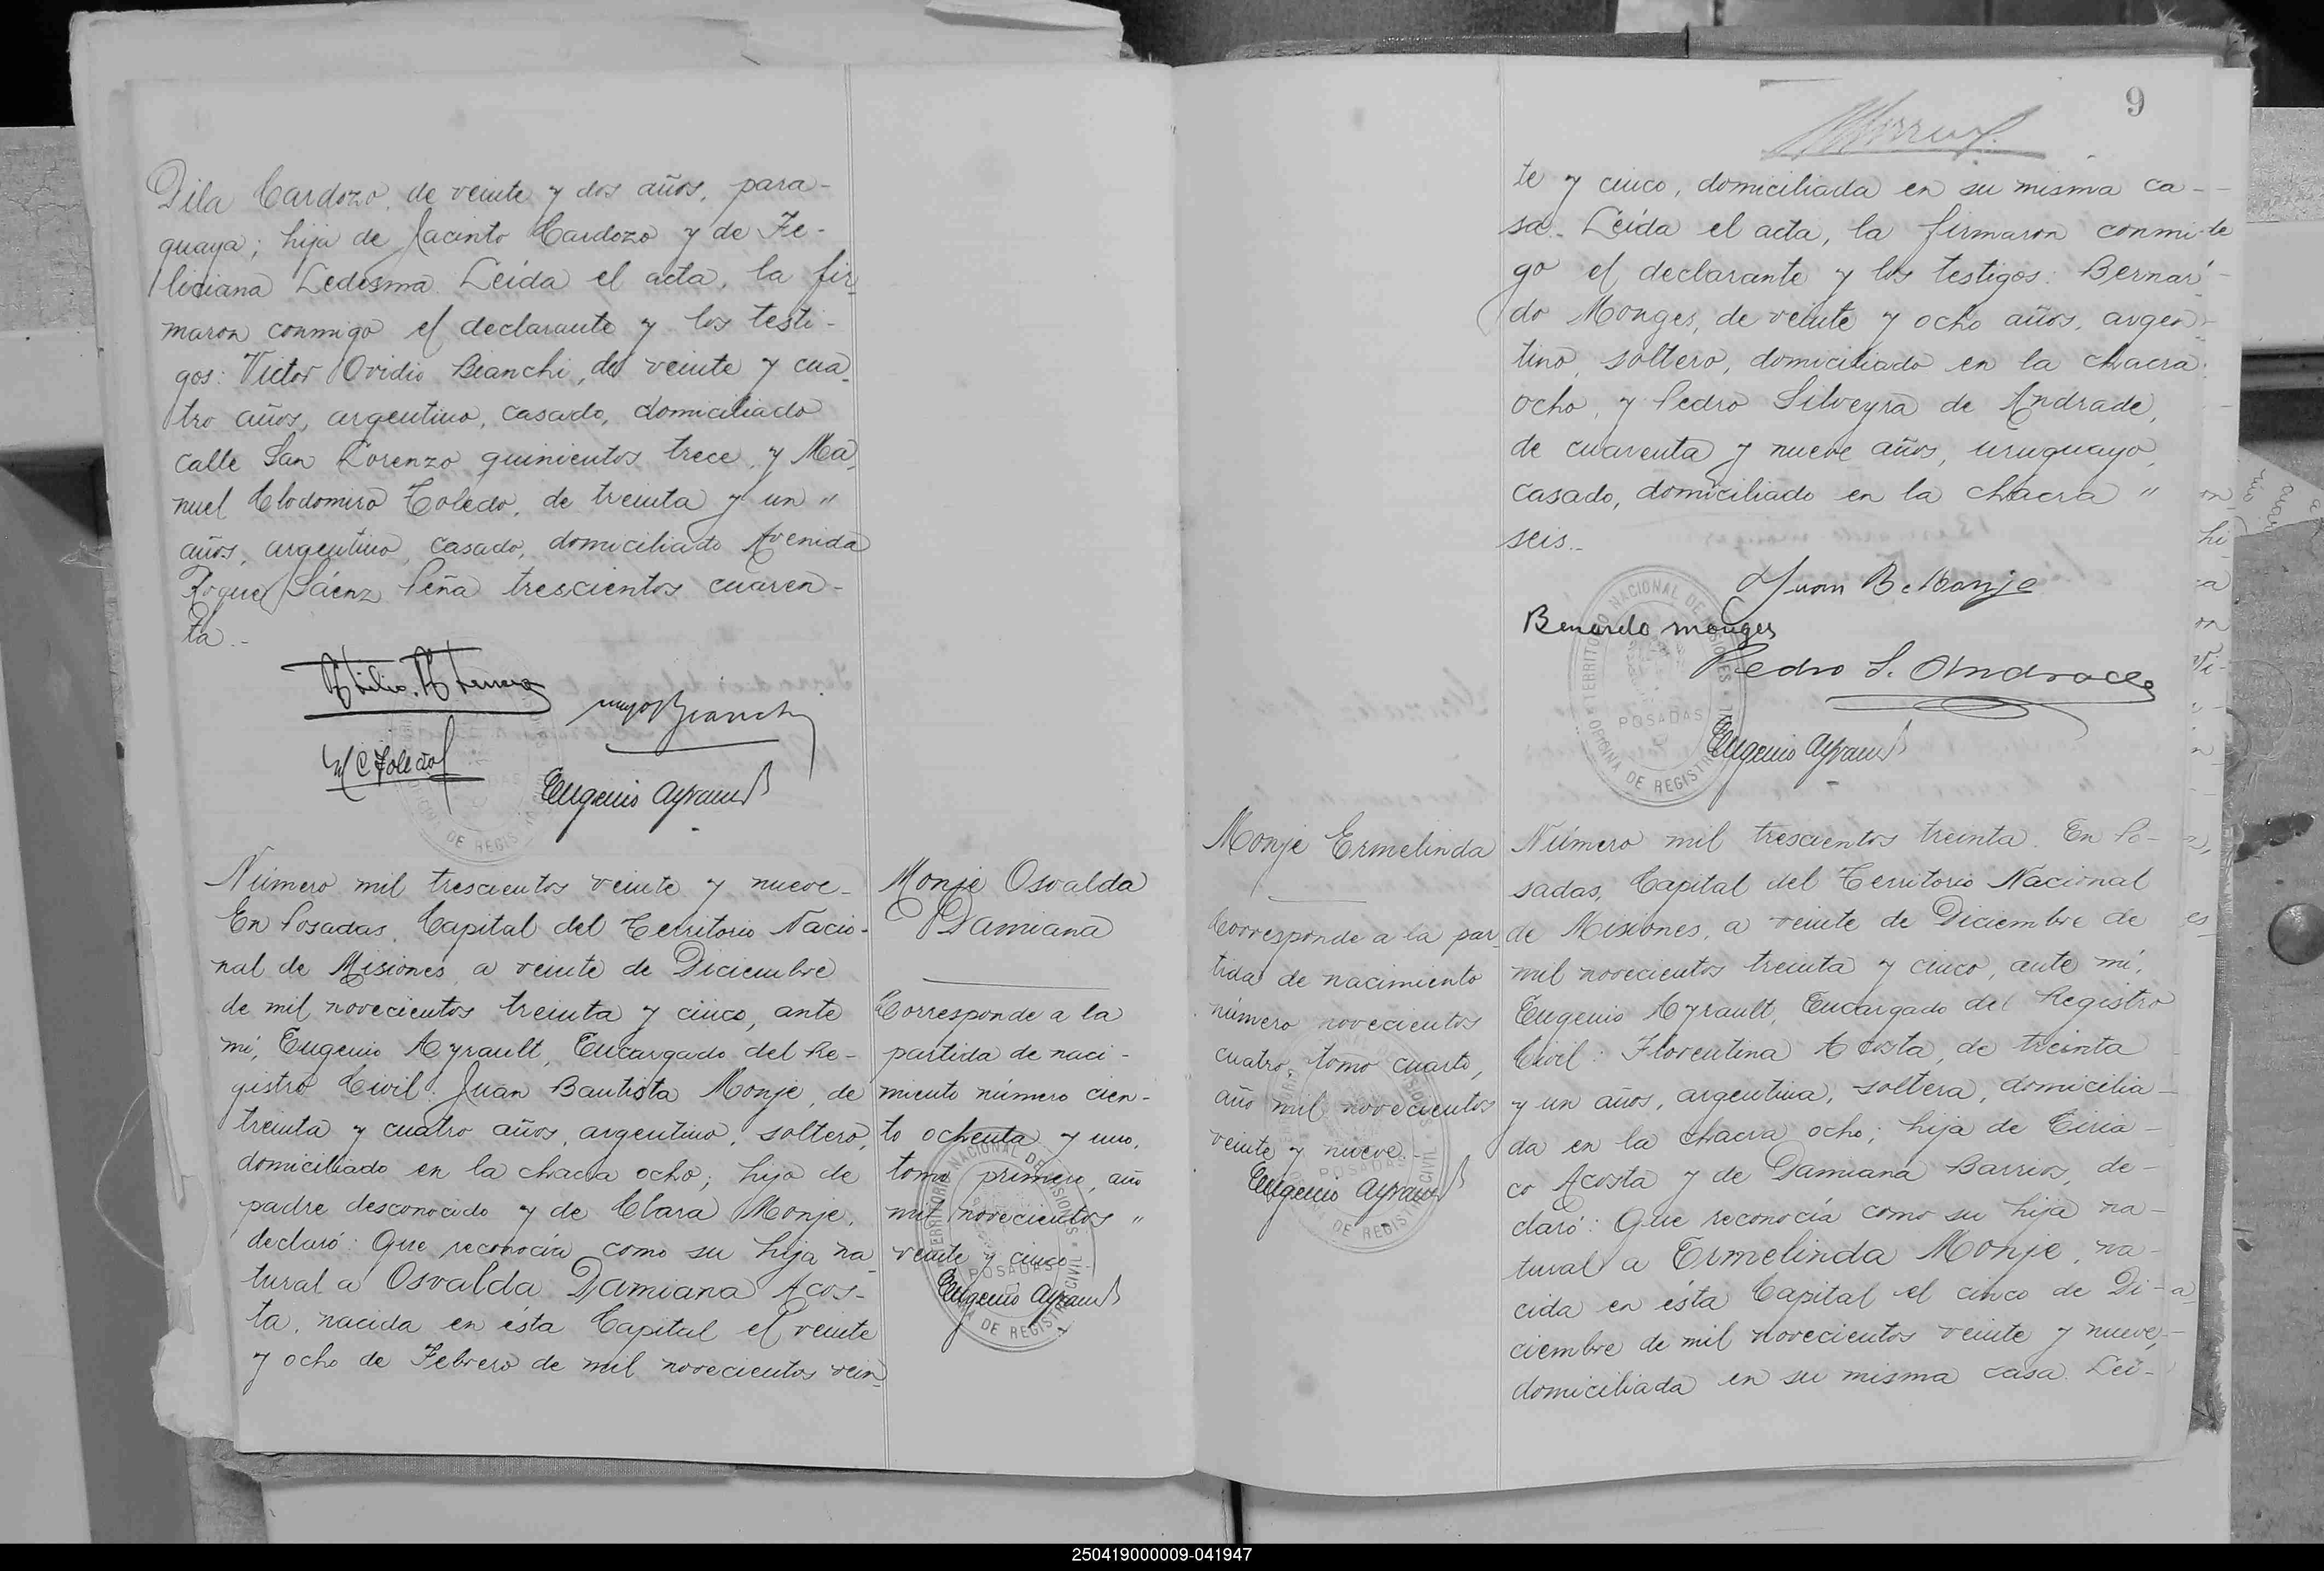 Dila Cardozo, de veinte y dos años, para-
guaya; hija de Jacinto Cardozo y de Fe-
liciana Ledesma. Leída el acta, la fir-
maron conmigo el declarante y los testi-
gos: Victor Ovidio Bianchi, de veinte y cua-
tro años, argentino, casado, domiciliado
calle San Lorenzo quinientos trece, y Ma-
nuel Clodomiro Toledo, de treinta y un "
años, argentino, casado, domiciliado Avenida
Roque Sáenz Peña trescientos cuaren-
ta.-
Bianchi
M C Toledo
Eugenio Ayrault
Número mil trescientos veinte y nueve-
En Posadas, Capital del Territorio Nacio-
nal de Misiones, a veinte de Diciembre
de mil novecientos treinta y cinco, ante
mí, Eugenio Ayrault, Encargado del Re-
gistro Civil: Juan Bautista Monje, de
treinta y cuatro años, argentino, soltero,
domiciliado en la chacra ocho; hijo de
padre desconocido y de Clara Monje,
declaró: Que reconocía como su hija na-
tural a Osvalda Damiana Acos-
ta, nacida en ésta Capital el veinte
y ocho de Febrero de mil novecientos vein-
Monje Osvalda
Damiana
Corresponde a la
partida de naci-
miento número cien-
to ochenta y uno,
tomo primero, año
mil novecientos "
veinte y cinco
Eugenio Ayrault
9
te y cinco, domiciliada en su misma ca-
sa. Leída el acta, la firmaron conmi-
go el declarante y los testigos: Bernar-
do Monges, de veinte y ocho años, argen-
tino, soltero, domiciliado en la chacra
ocho, y Pedro Silveyra de Andrade,
de cuarenta y nueve años, uruguayo,
casado, domiciliado en la chacra "
seis.-
Juan B. Monje
Benardo monges
Pedro S. Andrade
TERRITORIO NACIONAL DE MISIONES
POSADAS
OFICINA DE REGISTRO CIVIL
Eugenio Ayrault
Monje Ermelinda
Corresponde a la par-
tida de nacimiento
número novecientos
cuatro, tomo cuarto,
año mil novecientos
veinte y nueve.-
Eugenio Ayrault
Número mil trescientos treinta. En Po-
sadas, Capital del Territorio Nacional
de Misiones, a veinte de Diciembre de
mil novecientos treinta y cinco, ante mí,
Eugenio Ayrault, Encargado del Registro
Civil: Florentina Acosta, de treinta
y un años, argentina, soltera, domicilia-
da en la chacra ocho; hija de Ciria-
co Acosta y de Damiana Barrios, de-
claró: Que reconocía como su hija na-
tural a Ermelinda Monje, na-
cida en ésta Capital el cinco de Di-
ciembre de mil novecientos veinte y nueve,
domiciliada en su misma casa. Leí-
250419000009-041947